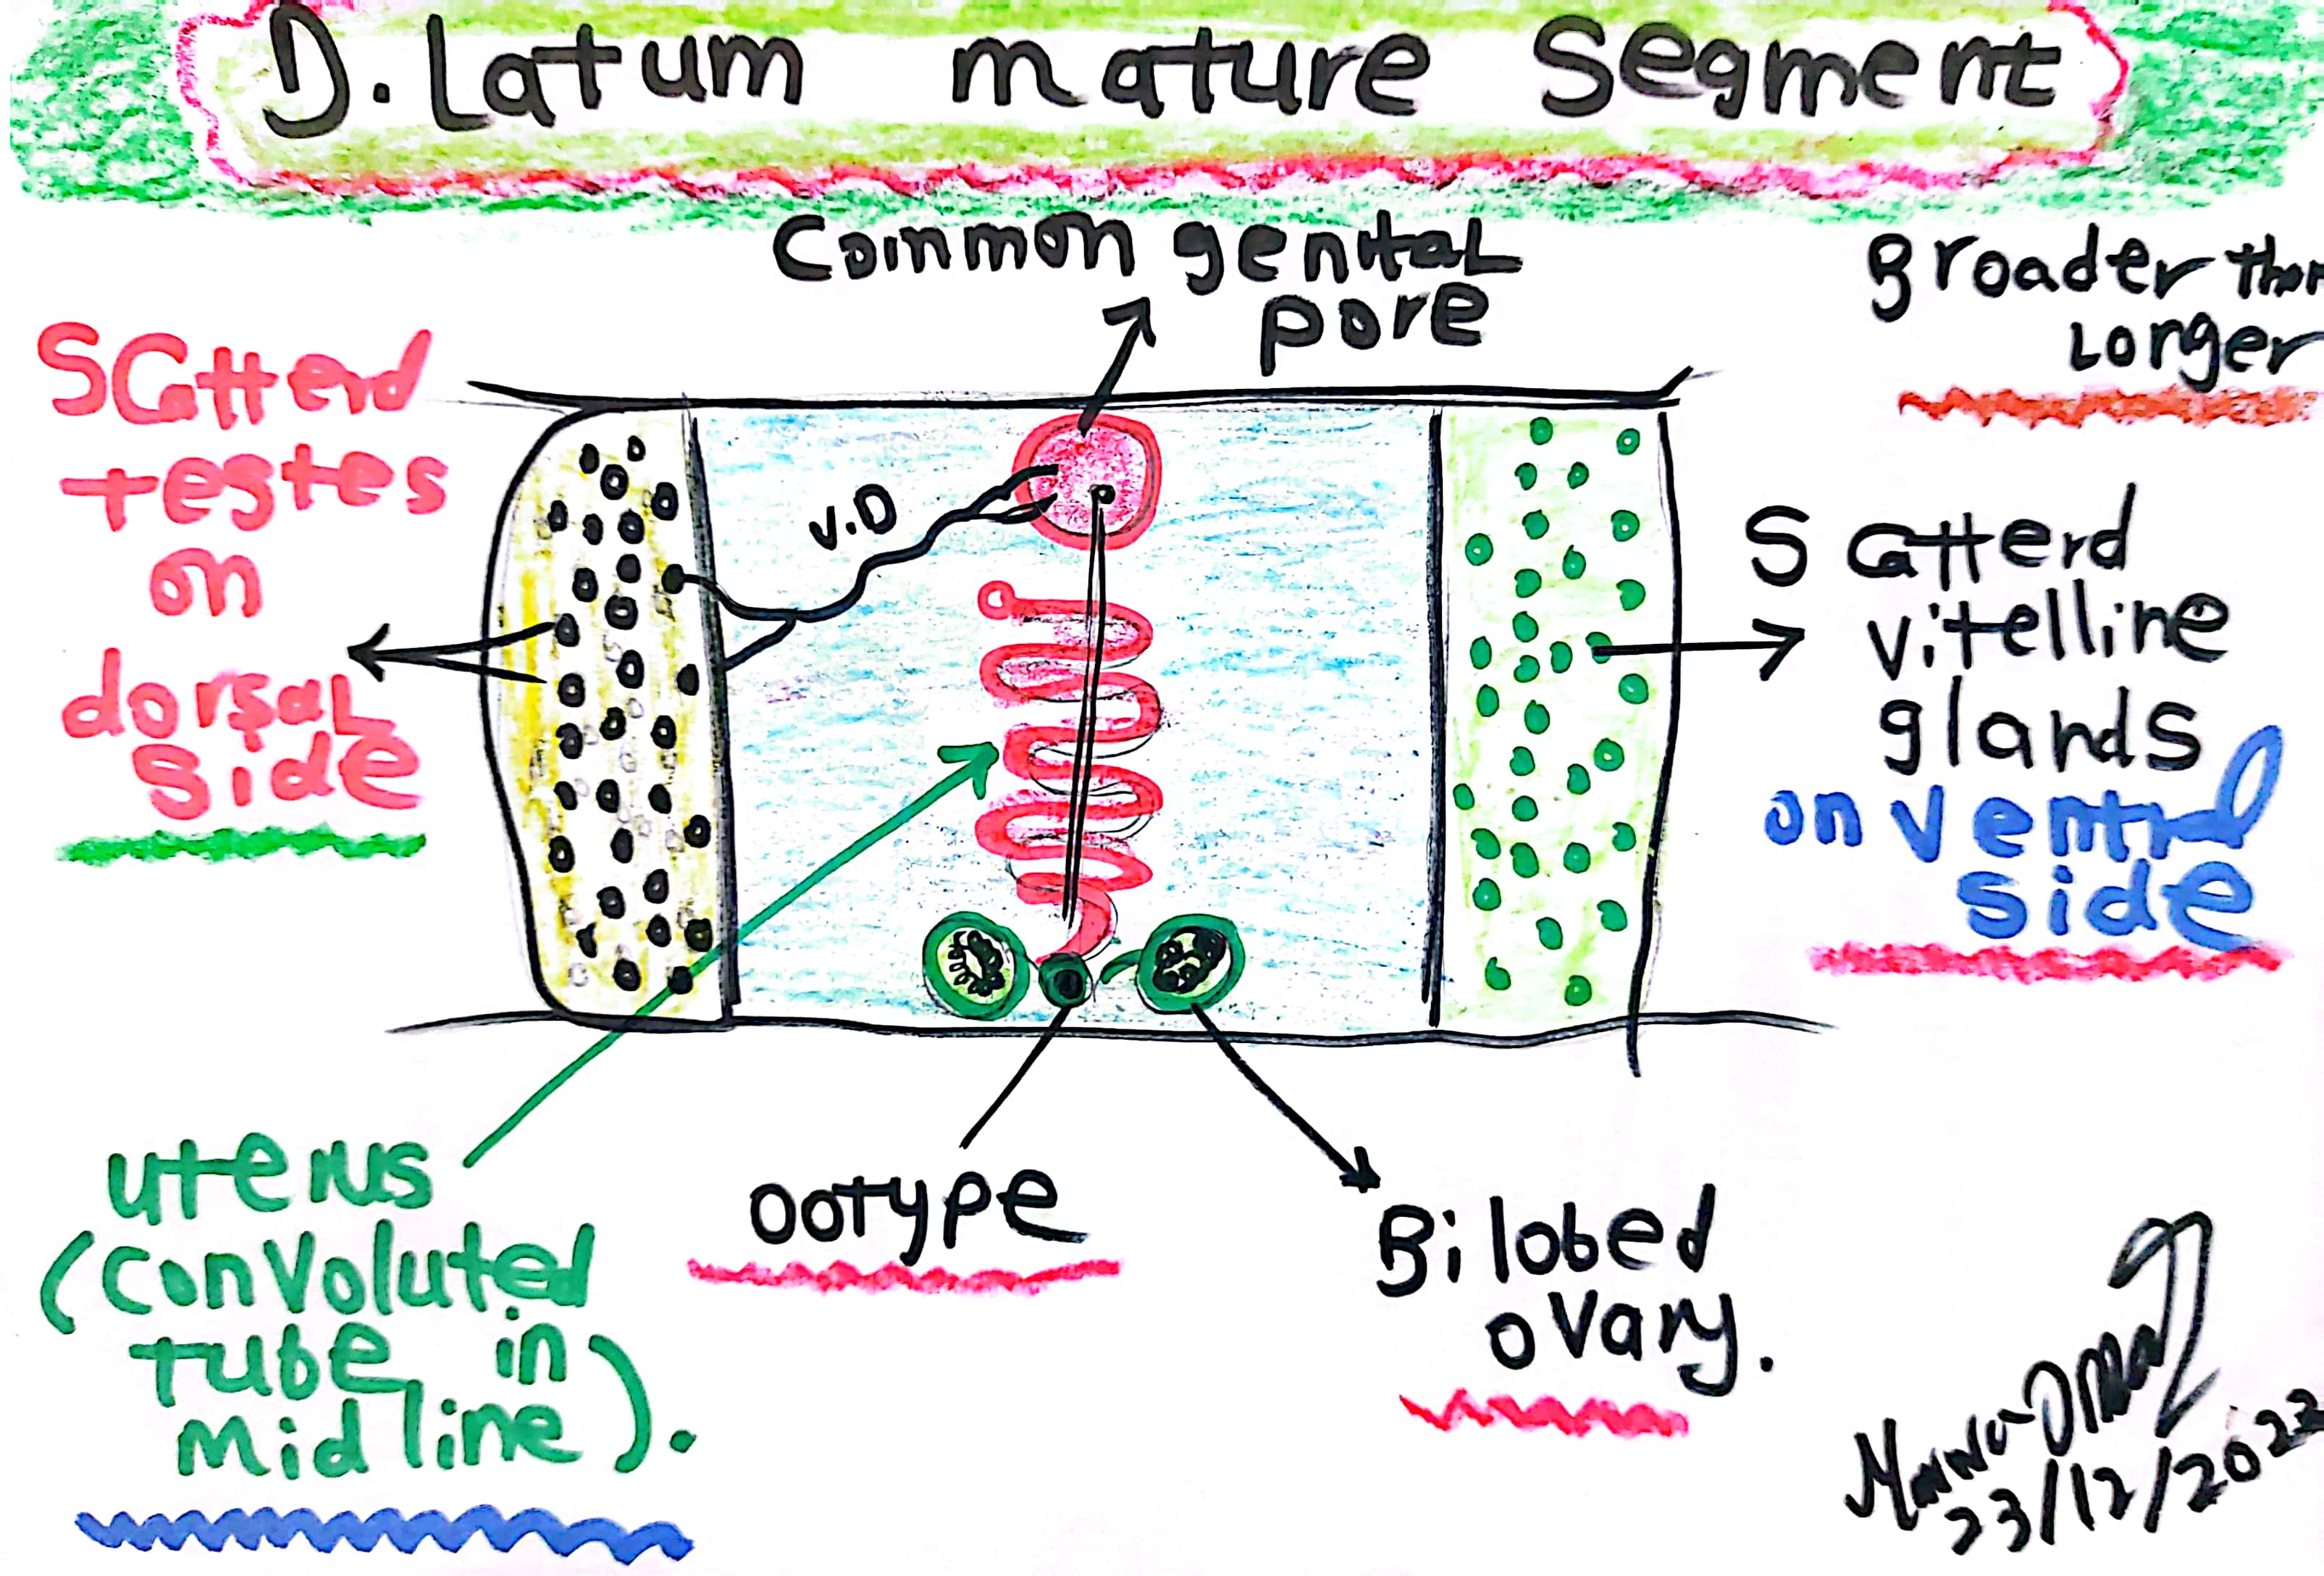 D. Latum mature segment
Common genital
pore
Broader than
Longer
Scatterd
testes
on
dorsal
side
V.D
Scatterd
vitelline
glands
on ventral
side
uterus
(convoluted
tube in
midline).
ootype
Bilobed
ovary.
23/12/2022